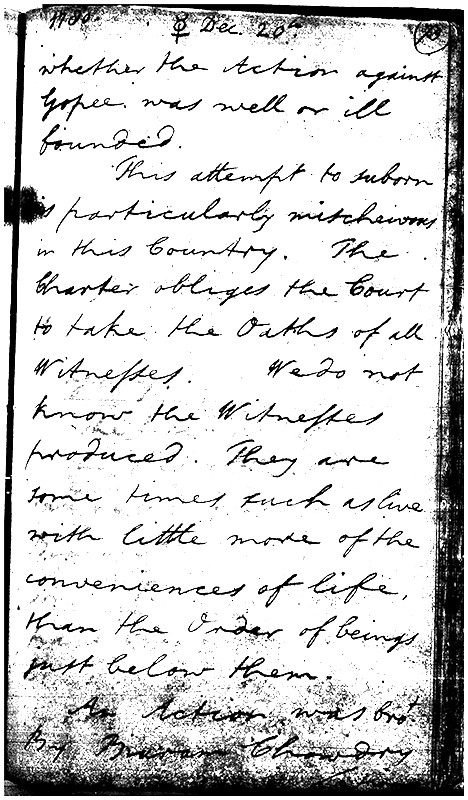 1780. ☿ Dec. 20th
whether the Action against
Gopee was well or ill
founded.
This attempt to suborn
is particularly mischeivous
in this Country. The
Charter obliges the Court
to take the Oaths of all
Witneſses. We do not
know the Witneſses
produced. They are
some times such as live
with little more of the
conveniences of life,
than the Order of beings
just below them.
An Action was brot
By Chowdry